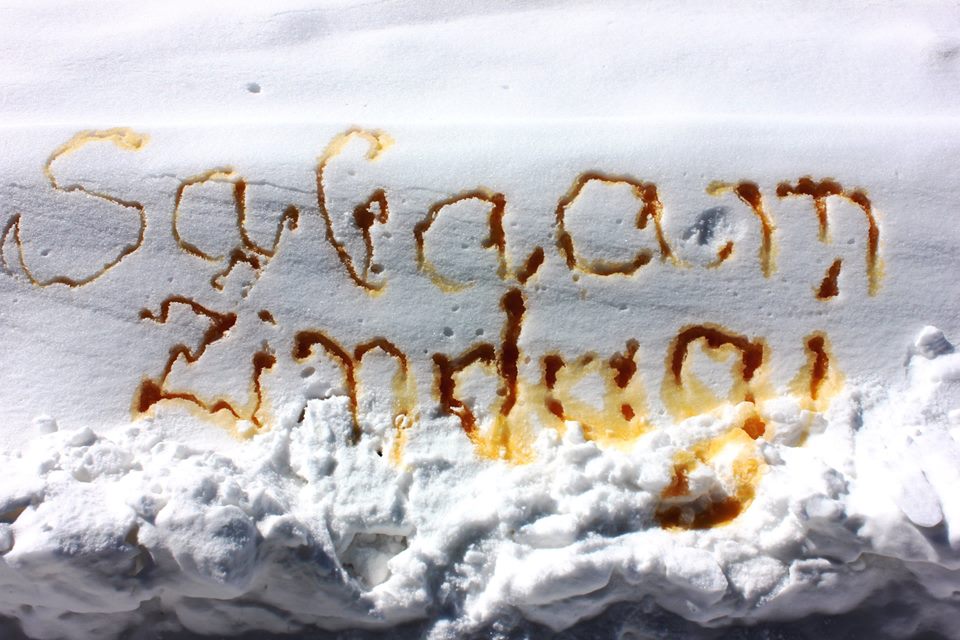 Salaam
Zindagi